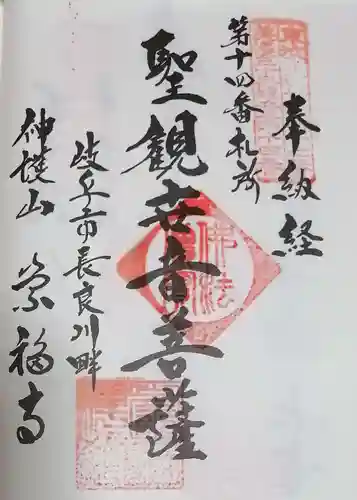 奉納経
第十四番札所
聖観世音菩薩
岐阜市長良川畔
神護山 崇福寺
佛法僧寳